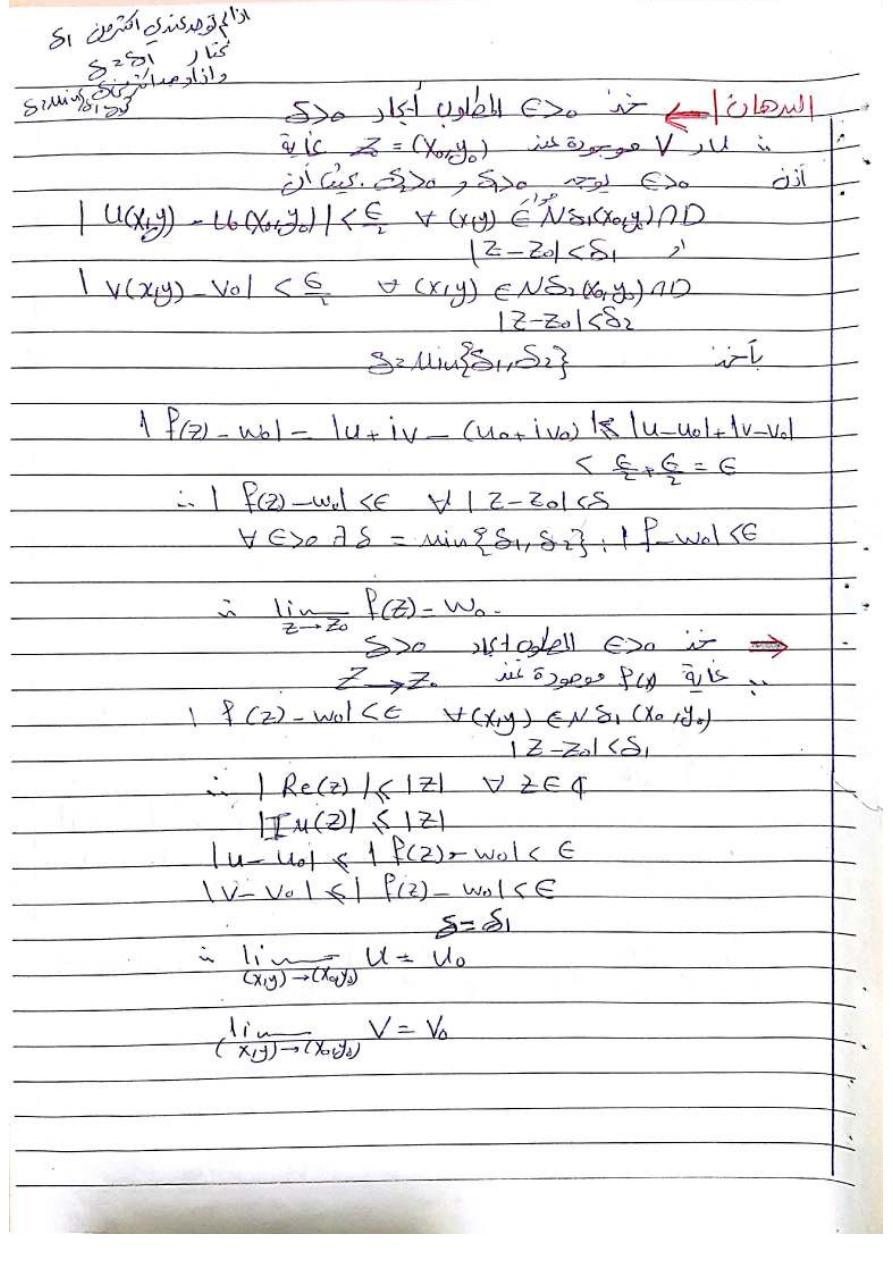 اذا لم توجد عندي اكثر من δ1
نختار δ=δ1
واذا وجد اكثر من
δ=min{δ1,δ2}
البرهان | ⇐ خذ ϵ>0 المطلوب أيجاد δ>0
∵ u و V موجودة عند Z0 = (x0,y0) غاية
أذن ϵ>0 يوجد δ1>0 و δ2>0 بحيث أن
| U(x,y) - U0(x0,y0)| < ϵ/2 ∀ (x,y) ∈ Nδ1(x0,y0)∩D
او |Z-Z0|<δ1
| V(x,y) - V0| < ϵ/2 ∀ (x,y) ∈ Nδ2(x0,y0)∩D
|Z-Z0|<δ2
بأخذ δ=Min{δ1,δ2}
| f(z) - w0| = |u+iv - (u0+iv0)| ≤ |u-u0|+|v-v0|
< ϵ/2 + ϵ/2 = ϵ
∴ | f(z) - w0| <ϵ ∀ |Z-Z0|<δ
∀ ϵ>0 ∃ δ = min{δ1,δ2} : | f-w0| <ϵ
∴ lim z→z0 f(z) = w0.
⇒ خذ ϵ>0 المطلوب ايجاد δ>0
∵ غاية f(z) موجودة عند Z→Z0
| f(z) - w0| <ϵ ∀(x,y) ∈ Nδ1(x0,y0)
|Z-Z0|<δ1
∴ | Re(z) | ≤ |z| ∀ z∈ ₵
|Im(z)| ≤ |z|
|u-u0| ≤ | f(z) - w0| < ϵ
|v-v0| ≤ | f(z) - w0| < ϵ
δ=δ1
∴ lim (x,y)→(x0,y0) U = U0
lim (x,y)→(x0,y0) V = V0